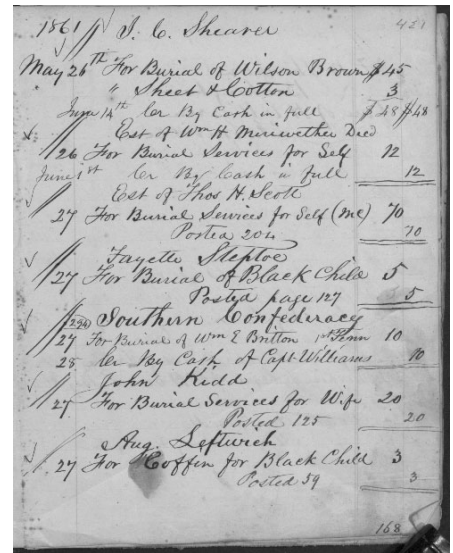 1861 // J. C. Shearer 451
May 26th For Burial of Wilson Brown $45
" Sheet & Cotton 3
June 14th Cr By Cash in full $48 $48
// Est of Wm H. Meriwether Decd
26 For Burial Services for Self 12
June 1st Cr By Cash in full 12
// Est of Thos H. Scott
27 For Burial Services for Self (Me) 70
Posted 204 70
// Fayette Steptoe
27 For Burial of Black Child 5
Posted page 127 5
// 294 Southern Confederacy
27 For Burial of Wm E Britton 1st Tenn 10
28 Cr By Cash of Capt Williams 10
// John Kidd
27 For Burial Services for Wife 20
Posted 125 20
// Aug. Leftwich
27 For Coffin for Black Child 3
Posted 59 3
168